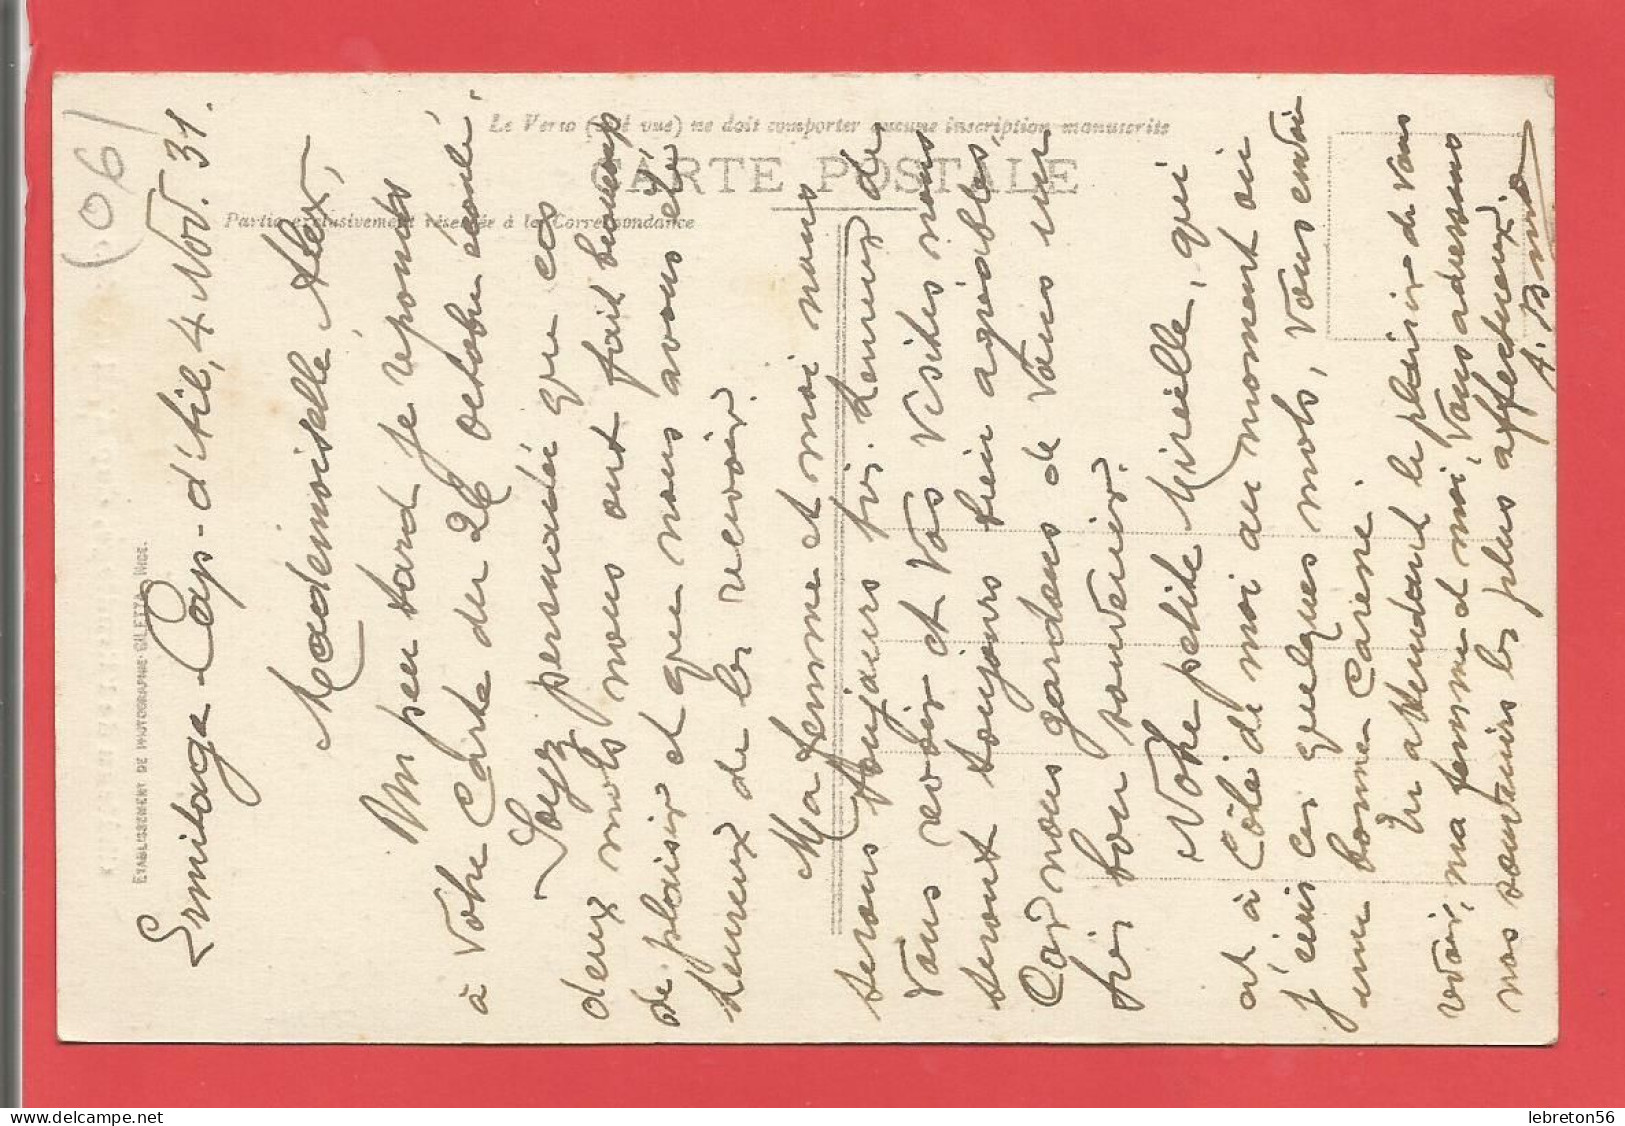 (06)
Le Verso (côté vue) ne doit comporter aucune inscription manuscrite
CARTE POSTALE
Partie exclusivement réservée à la Correspondance
ETABLISSEMENT DE PHOTOGRAPHIE-GILETTA NICE.
Ermitage Cap-d'Ail, 4 Nov. 31.
Mademoiselle Alex,
Un peu tard je reponds
à votre Carte du 26 octobre écoulé.
Soyez persuadée que ces
deux mots nous ont fait beaucoup
de plaisir et que nous avons été
heureux de les recevoir.
Ma femme et moi nous
serons toujours fin. heureux de
vous revoir et vos visites nous
seront toujours bien agréables,
Car nous gardons de vous un
fin bon souvenir.
Votre petite Mireille, qui
est à Côté de moi au moment où
j'écris ces quelques mots, vous envoie
une bonne Caresse.
En attendant le plaisir de vous
voir, ma femme et moi, vous adressons
nos souvenirs les plus affectueux.
lebreton56